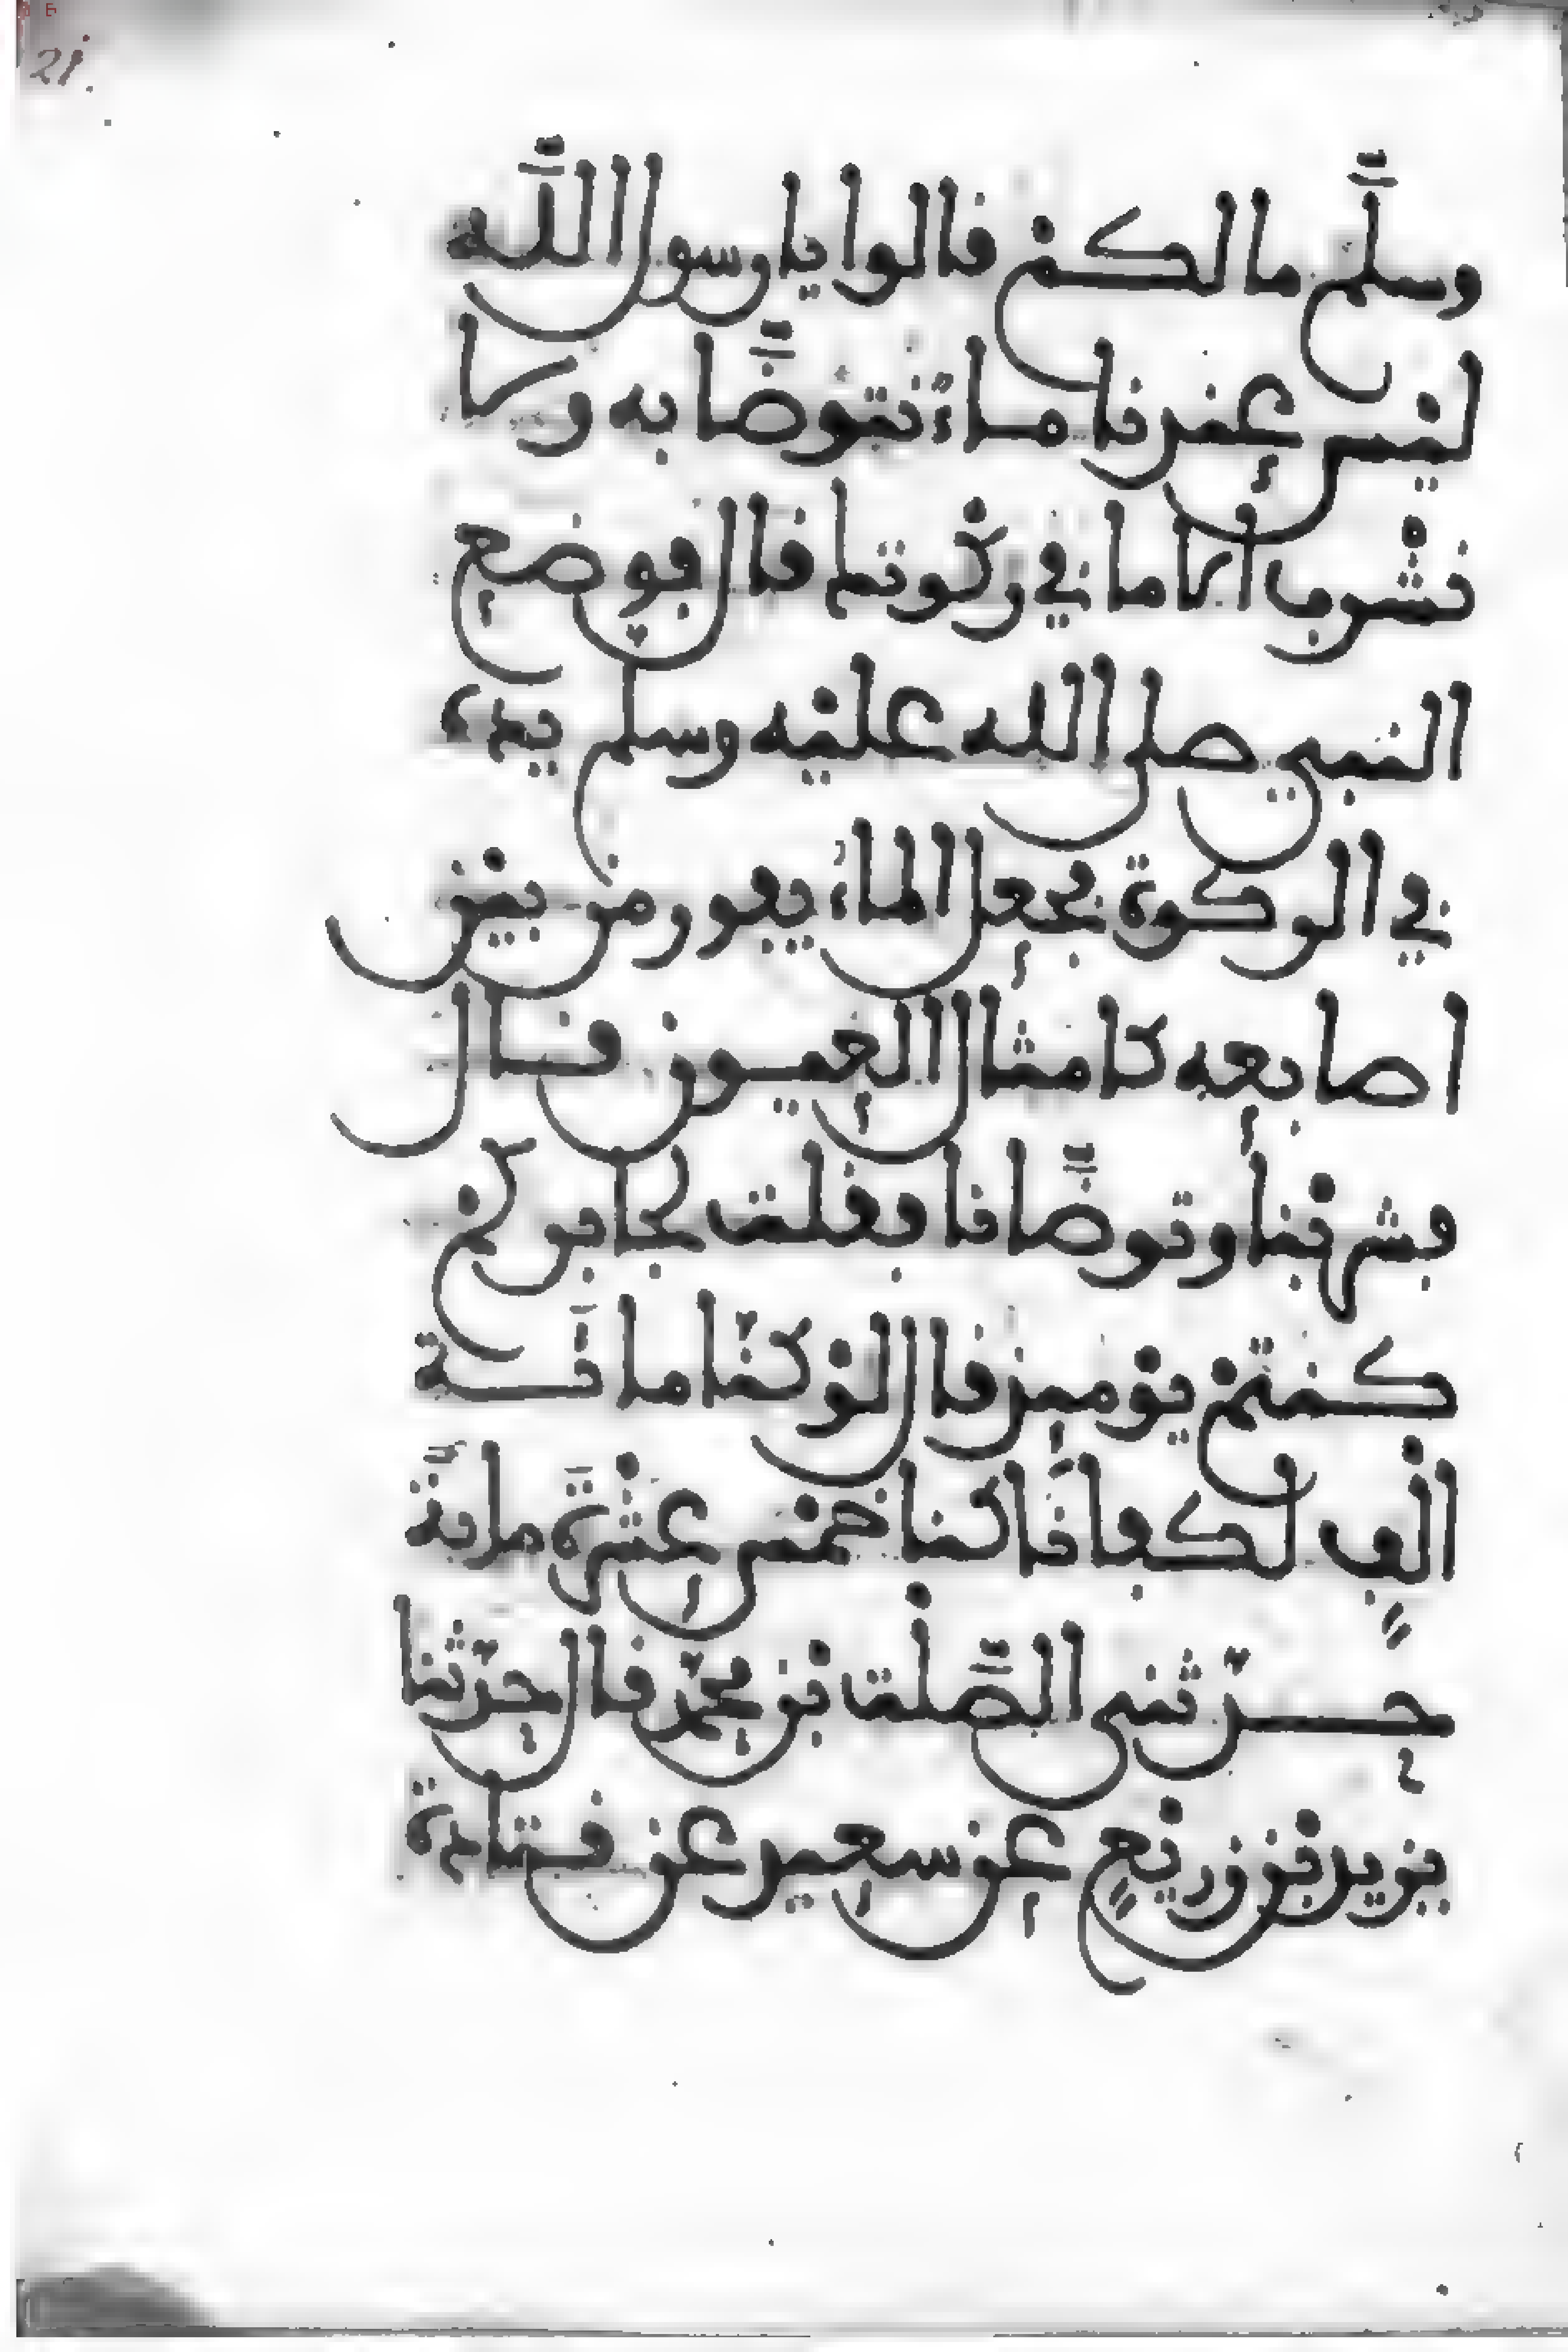 21.
وسلَّم ما لكمْ قالوا يا رسول اللَّه
ليْس عنْدنا ماءٌ نتوضَّا به ولا
نشْرب الا ما في رَكْوتك قال فوضع
النبي صلى الله عليْه وسلم يده
في الركوة فجعل الماء يفور منْ بيْن
اصابعه كامثال العيون قال
فشربْنا وتوضَّانا فقلت لجابر كمْ
كنتمْ يوْميذ قال لوْ كنّا مائة
الْفٍ لكفانا كنا خمْس عشْرة مائة
حدّثني الصَّلْت بْن محمّد قال حدّثنا
يزيد بْن زريْعٍ عنْ سعيد عنْ قتادة